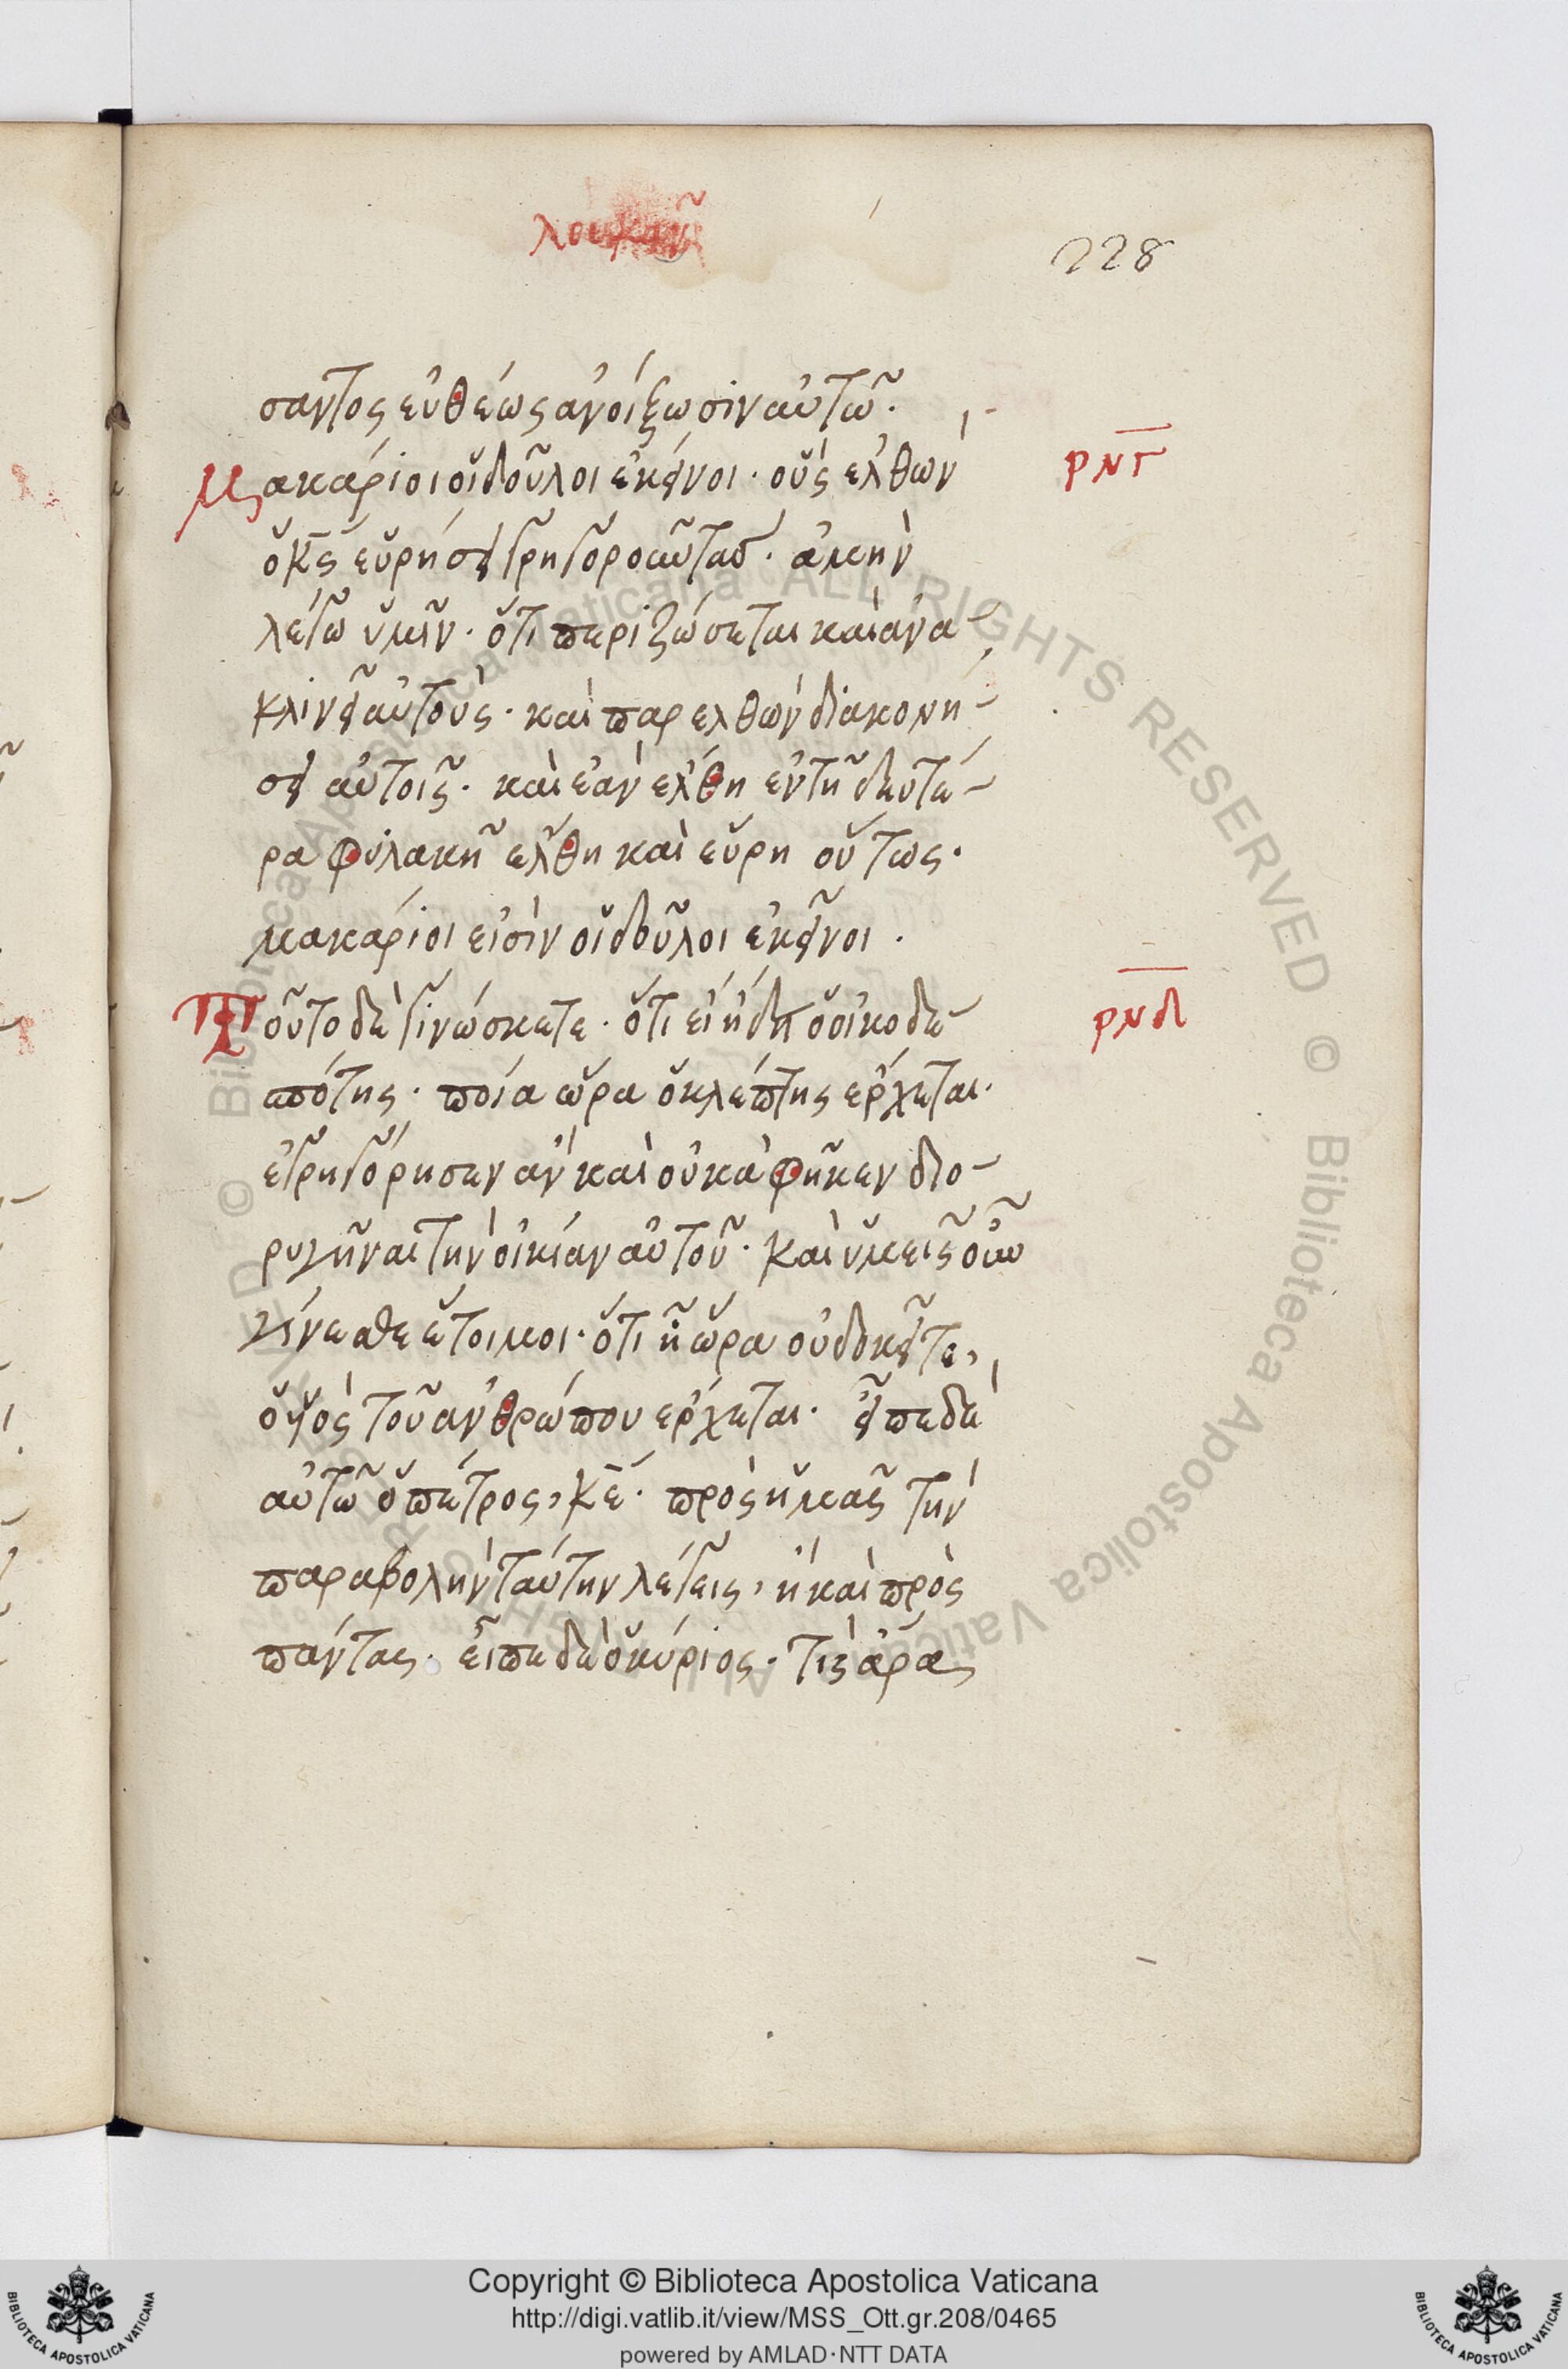 λουκᾶν
228
σαντος εὐθέως ἀνοίξωσιν αὐτῶ·
Μακάριοι οἱ δοῦλοι ἐκεῖνοι· οὓς ἐλθὼν
ρνγ
ὁ κς εὑρήσει γρηγοροῦντας· ἀμὴν
λέγω ὑμῖν· ὅτι περιζώσεται καὶ ἀνα-
κλινεῖ αὐτοὺς· καὶ παρελθὼν διακονή-
σει αὐτοῖς· καὶ ἐὰν ἔλθη ἐν τῆ δευτέ-
ρα φυλακῆ ἔλθη καὶ εὕρη οὕτως·
μακάριοι εἰσὶν οἱ δοῦλοι ἐκεῖνοι·
Τοῦτο δὲ γινώσκετε· ὅτι εἰ ἤδει ὁ οἰκοδε-
ρνδ
σπότης· ποία ὥρα ὁ κλέπτης ἔρχεται·
ἐγρηγόρησεν ἂν καὶ οὐκ ἀφῆκεν διο-
ρυγῆναι τὴν οἰκίαν αὐτοῦ· καὶ ὑμεῖς οὖν
γίνεσθε ἕτοιμοι· ὅτι ἧ ὥρα οὐ δοκεῖτε,
ὁ υἱὸς τοῦ ἀνθρώπου ἔρχεται· εἶπε δὲ
αὐτῶ ὁ πέτρος, κε· πρὸς ἡμᾶς τὴν
παραβολὴν ταύτην λέγεις, ἢ καὶ πρὸς
πάντας· εἶπε δὲ ὁ κύριος· τίς ἄρα
Copyright © Biblioteca Apostolica Vaticana
http://digi.vatlib.it/view/MSS_Ott.gr.208/0465
powered by AMLAD·NTT DATA